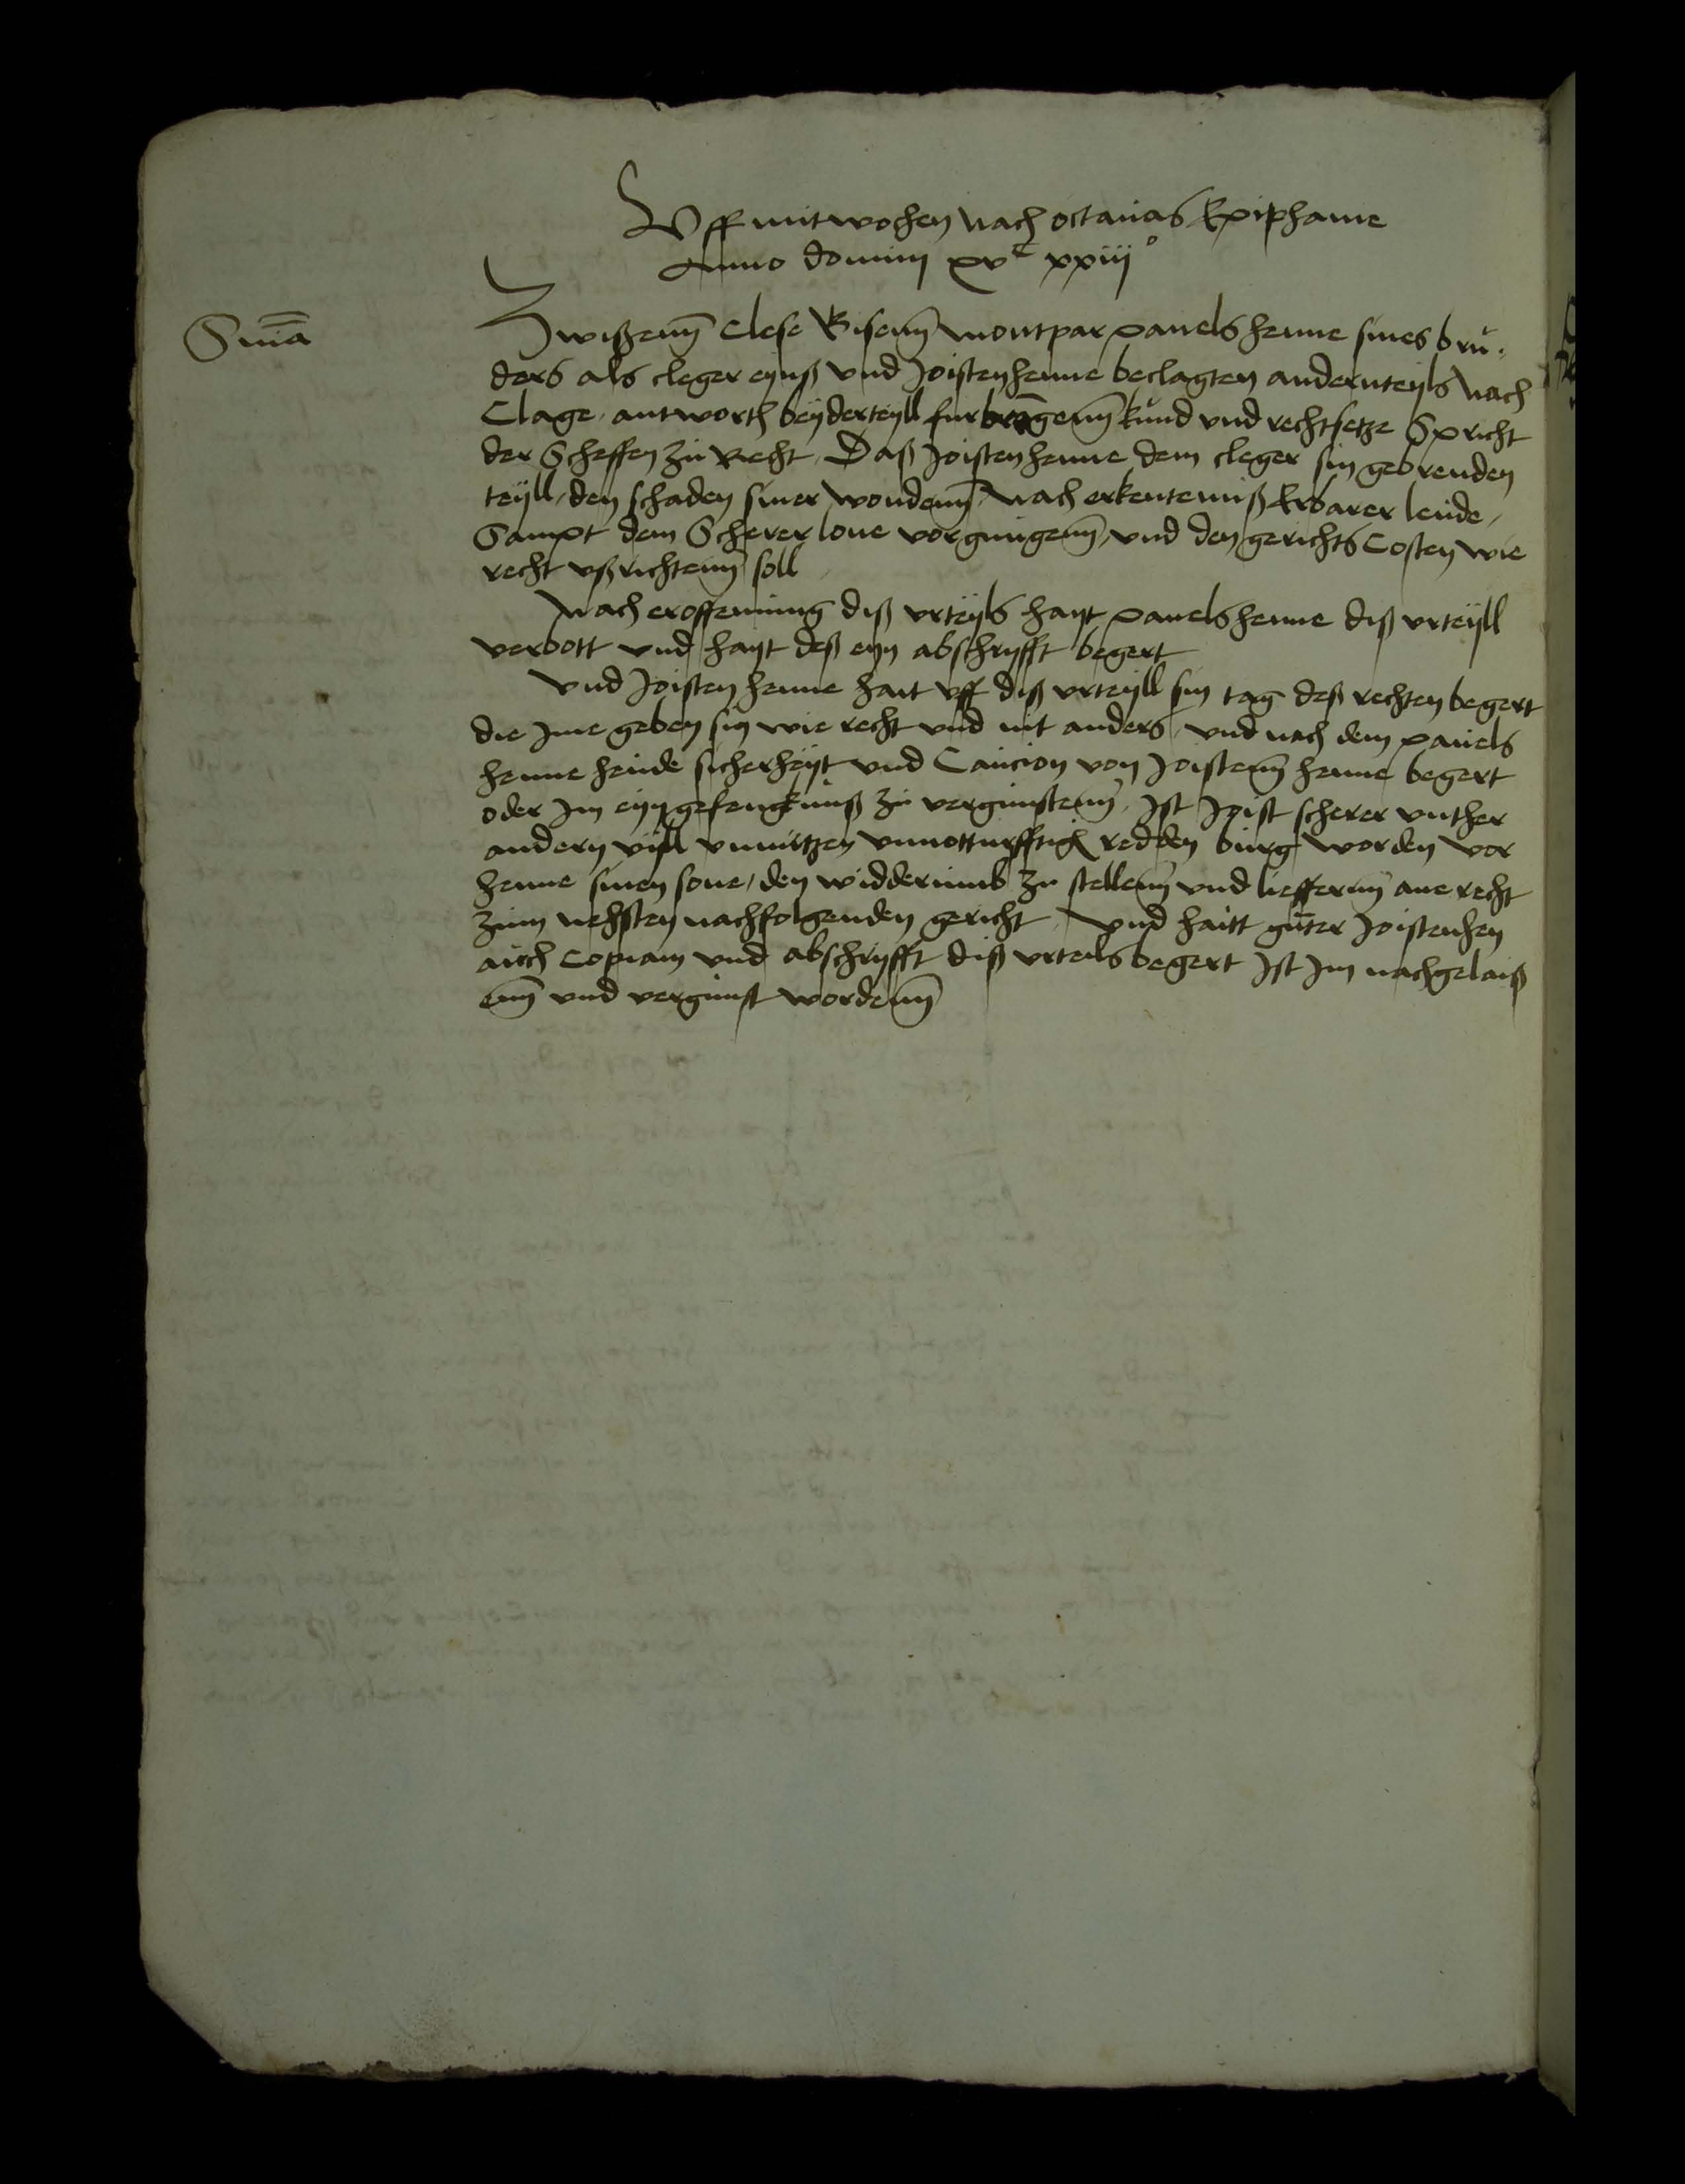 Uff mitwochen nach octavas Epiphanie
Anno domini xvc xxiii°
Sn̅ia
Zwißenn Clese Risenn montpar pauels henne sines brů,
ders als cleger eynß vnd Joisten henne beclagten andernteyls Nach
Clage, antworth beyderteyll furbrāgenn kůnd vnd rechtsetze Spricht
der Scheffen zu Recht, Daß Joisten henne dem cleger sin geborenden
teyll, den schaden siner wondenn, Nach erkentenniß Erbarer leude,
Sampt dem Scherer lone vorgnugenn, vnd den gerichts Costen wie
recht vßrichtenn soll
Nach eroffenung diß vrteyls hayt pauels henne diß vrteyll
verbott vnd hayt deß eyn abschryfft begert
Vnd Joisten henne hait vff diß vrteyll sin tag deß rechten begert
die Jme geben sin wie recht vnd nit anders, vnd nach dem pauels
henne heude sicherheyt vnd Caucion von Joistenn henne begert
oder Jm eyn gefengkniß zu vergunstenn, Jst Joist scherer vnther
andern vyll vnnutzen vnnotturfftigen redden burg worden vor
henne sinen sone, den widderumb zu stellenn vnd lieffernn ane recht
zum nehsten nachfolgenden gericht, Vnd haitt gu̅ter Joistenhen
auch Copiam vnd abschryfft diß vrteils begert Jst Jm nachgelaiß
enn vnd vergunst wordenn